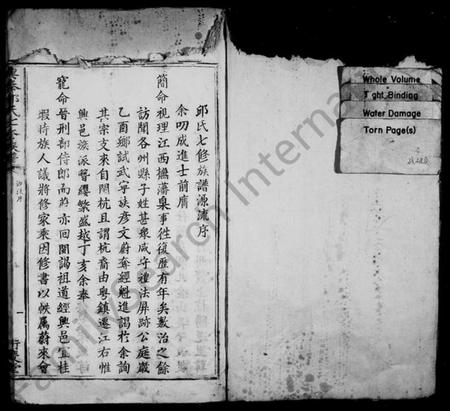 邱氏七修族譜源流序
余叨成進士前膺
簡命視理江西撫藩臬事徃復歷有年矣敷治之餘
訪聞各州縣子姓甚衆咸守禮法屏跡公庭嚴
乙酉鄉試武寧族彥文蔚奪經魁進謁於余詢
其宗支來自閩杭且謂杭裔由粵鎮遷江右惟
興邑族派簪纓繁盛越丁亥余奉
寵命晉刑部侍郎尚蔚亦回閩謁祖道經興邑宜桂
暇時族人議將修家乘因修書以候屬蔚來會
一
Whole Volume
Tight Binding
Water Damage
Torn Page(s)
FamilySearch International